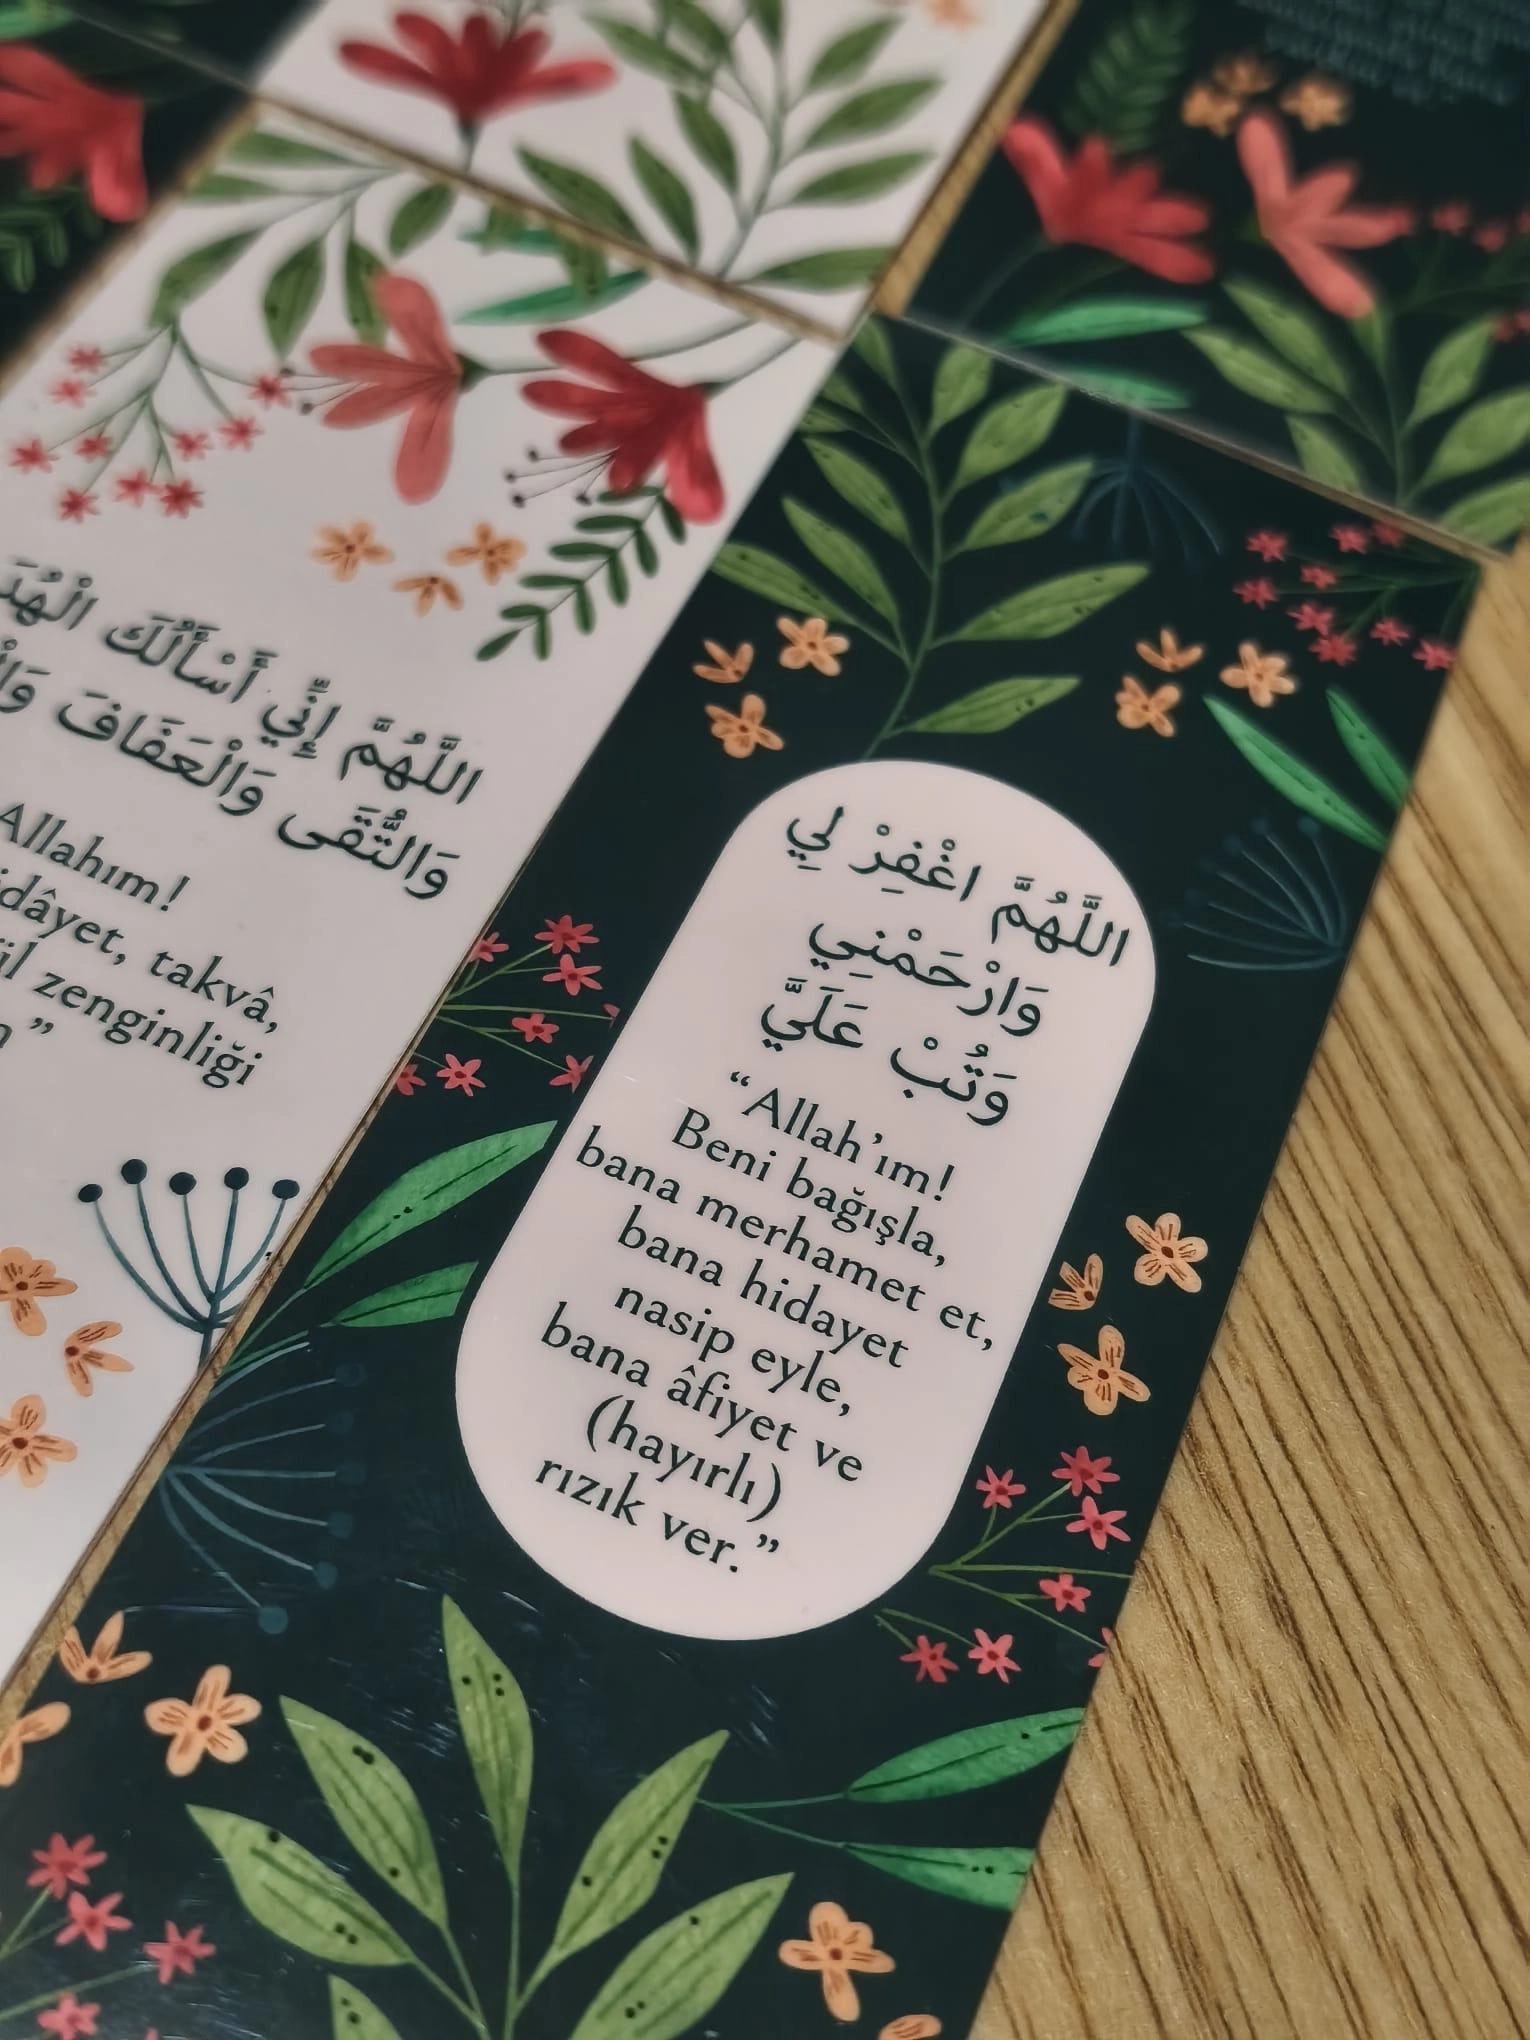 اللَّهُمَّ إِنِّي أَسْأَلُكَ
وَالتُّقَى وَالْعَفَافَ
Allahım!
takvâ,
zenginliği
”
اللَّهُمَّ اغْفِرْ لِي
وَارْحَمْنِي
وَتُبْ عَلَيَّ
“Allah’ım!
Beni bağışla,
bana merhamet et,
bana hidayet
nasip eyle,
bana âfiyet ve
(hayırlı)
rızık ver.”